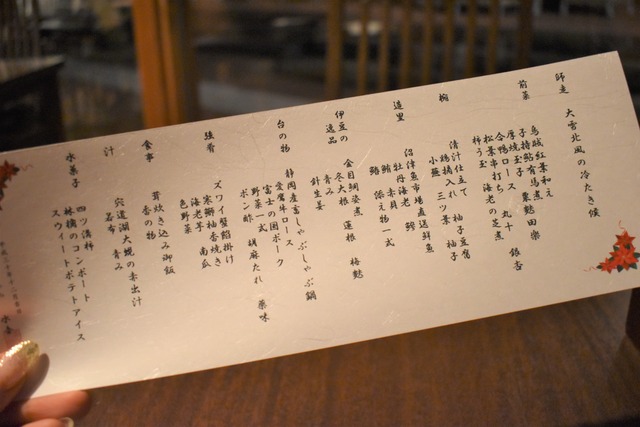 師走　大雪北風の冷たき候
前菜　烏賊紅葉和え
子持鮎有馬煮　粟麩田楽　銀杏
厚焼玉子
合鴨ロース　丸十
松葉串打ち　海老の芝煮
柿う玉
椀　清汁仕立て　柚子豆腐
鶏摘入れ　三ツ葉　柚子
小蕪
造里　沼津魚市場直送鮮魚
牡丹海老　鰺
鮪　赤貝
鰭　添え物一式
伊豆の逸品　金目鯛姿煮　蓮根　梅麩
冬大根
青み
針生姜
台の物　静岡産富しゃぶしゃぶ鍋
愛鷹牛ロース
富士の国ポーク
野菜一式　胡麻たれ　薬味
ポン酢
強肴　ズワイ蟹餡掛け
寒鰤柚香焼き
海老芋　南瓜
色野菜
食事　茸炊き込み御飯
香の物
汁　宍道湖大蜆の赤出汁
若布　青み
水菓子　四ツ溝柿
林檎のコンポート
スウィートポテトアイス